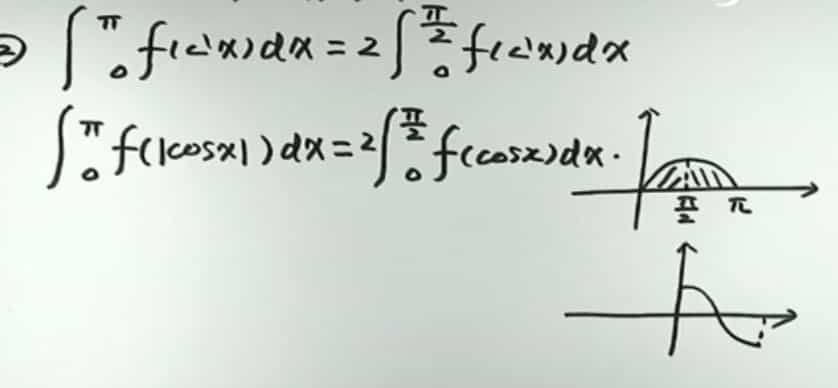 ② ∫₀^π f(s'x)dx = 2∫₀^(π/2) f(s'x)dx
∫₀^π f(|cosx|)dx = 2∫₀^(π/2) f(cosx)dx.
π/2 π